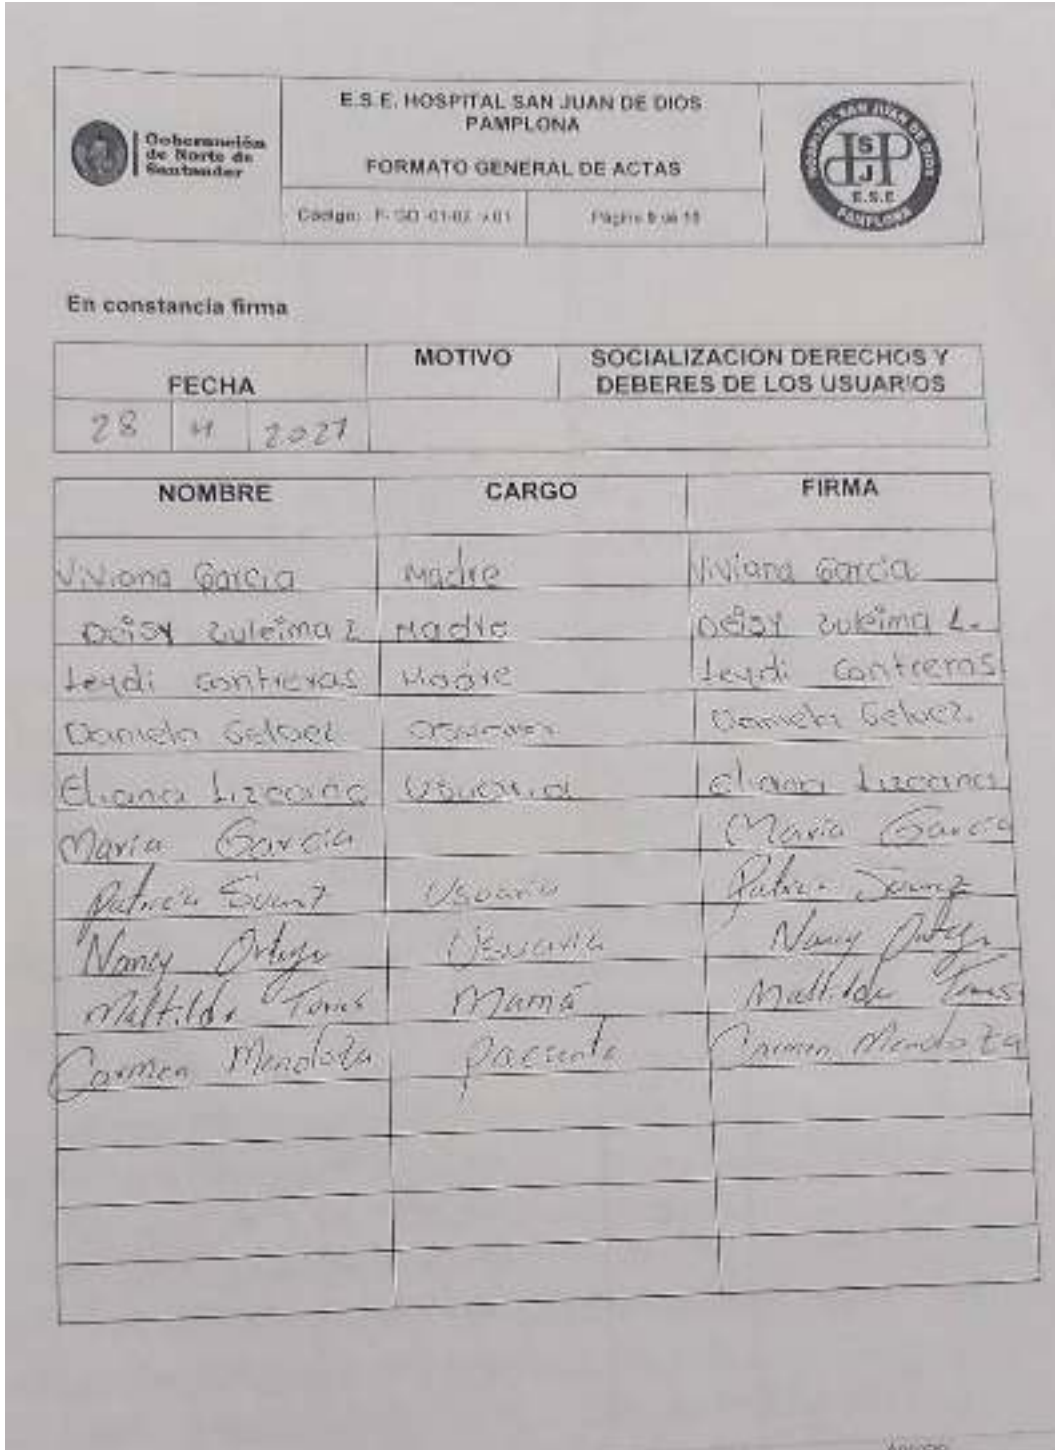 Gobernación
de Norte de
Santander
E.S.E. HOSPITAL SAN JUAN DE DIOS
PAMPLONA
FORMATO GENERAL DE ACTAS
Código:
Página
HOSPITAL SAN JUAN DE DIOS
SJ
HP
E.S.E
PAMPLONA
En constancia firma
FECHA MOTIVO SOCIALIZACIÓN DERECHOS Y
DEBERES DE LOS USUARIOS
28 2021
NOMBRE CARGO FIRMA
Viviana Garcia Madre Viviana Garcia
Deisy Zuleima Madre Deisy Zuleima
Leydi contreras Madre Leydi Contreras
Daniela Gelvez Daniela Gelvez
Eliana Lizcano Usuaria Eliana Lizcano
Maria Garcia Maria Garcia
Patricia Usuario
Nancy Ortega Usuaria Nancy Ortega
Mamá
Carmen Mendoza paciente Carmen Mendoza